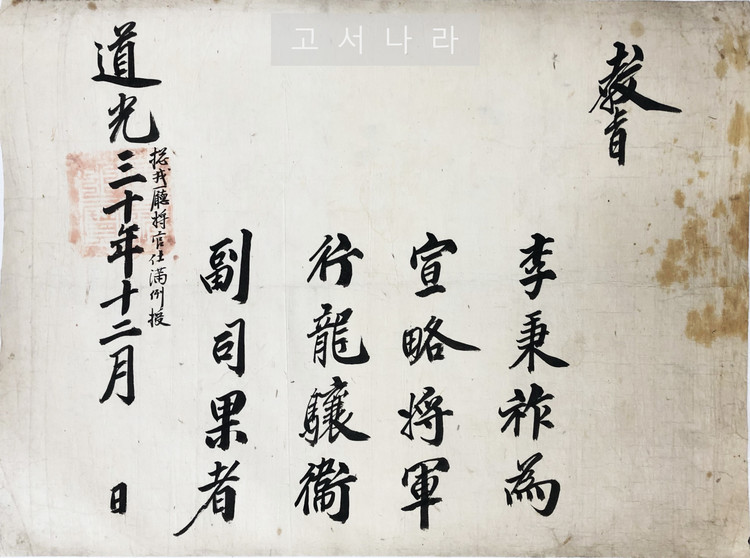 고서나라
敎旨
李秉祚為
宣略將軍
行龍驤衛
副司果者
道光三十年十二月 日
摠戎廳將官仕滿例授